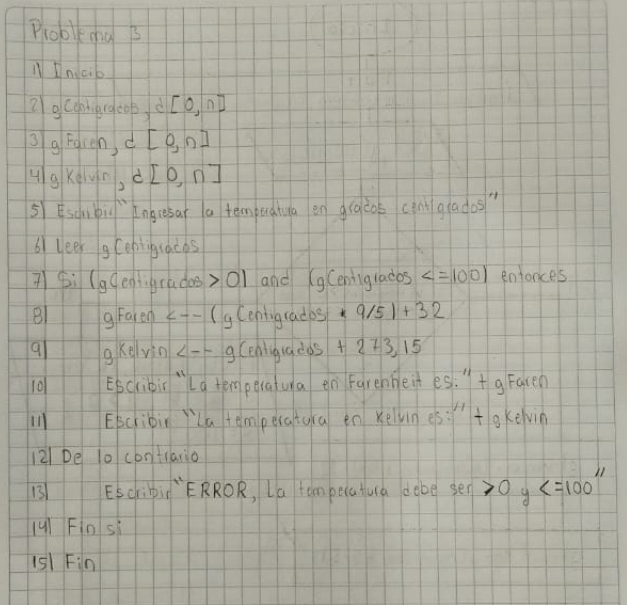 Problema 3
1) Inicio
2) gCentigrados, d [0, n]
3) gFaren, d [0, n]
4) gKelvin, d [0, n]
5) Escribir "Ingresar la temperatura en grados centigrados"
6) Leer gCentigrados
7) Si (gCentigrados > 0) and (gCentigrados <= 100) entonces
8) gFaren <-- (gCentigrados * 9/5) + 32
9) gKelvin <-- gCentigrados + 273,15
10) Escribir "La temperatura en Farenheit es:" + gFaren
11) Escribir "La temperatura en Kelvin es:" + gKelvin
12) De lo contrario
13) Escribir "ERROR, La temperatura debe ser >0 y <=100"
14) Fin si
15) Fin